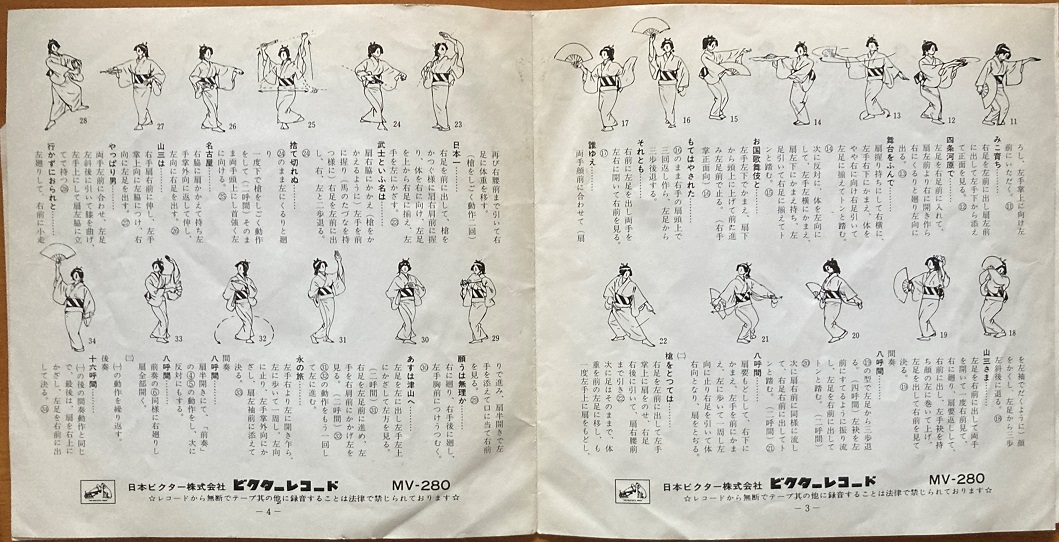 11
12
13
14
15
16
17
みこ育ち
右足を左前に出し扇左前
に立て左手下から添え
て正面を見る。⑫
四条河原で
扇を左に右足前に入れて、
扇左前より右前に開き作ら
右にくるりと廻り左向に
出る。⑬
舞台をふんで
扇握り持ちにして右横に、
左手右下にかまえ、体を
やや右に向け右足引いて
左足より左右左とトンと踏む。
⑭
次に反対に、体を左向に
し、左手左横にかまえ、
扇左下にかまえ持ち、左
足引いて右足左に揃えてト
ンと踏む。⑮
お国歌舞伎と
左手左下でかまえ、扇下
から頭上に上げて前に進
み左足前で止る。（右手
掌正面向）⑯
もてはやされた
⑯のまま右手の扇頭上で
三回返し作ら、左足から
三歩後退する。
それとも
右前に左足を出し両手を
左右に開いて右前を見る。
⑰
誰ゆえ
両手顔前に合わせて（扇
18
19
20
21
22
を左袖でだくように）顔
をかくし、左足から三歩
左斜後に退る。⑱
山三さま
左足を右前に出して両手
を開いて一度右前見て、
右に廻り、扇要返して、
右肩上に左手袂を持
ち顔の左に巻いて上げ、
右足左前に出して右前を見て
決る。⑲
間奏
八呼間
⑲の型で左足から三歩退
る。（四呼間）左袂を左
前にすてるように振り流
し、左足前に出して左に
トンと踏む。（二呼間）
⑳
次に扇右前に同様に流し
て、右足右前に出してト
ンと踏む。（二呼間）㉑
八呼間
扇要もどして、右下に
かまえ、左手を前にかま
え、左に歩いて一周し左
向に止り右足を引いて体
右向となり、扇をとぢる。
㈡
槍をとつては
右足を左前に出して左手
掌に扇をのせ、右足
を右前に引いて、扇右腰前
まで引き㉒
次に足はそのままで、体
重を前の左足に移し、も
一度左手上に扇をもどし、
日本ビクター株式会社 ビクターレコード MV-280
☆レコードから無断でテープ其の他に録音することは法律で禁じられております☆
－3－
23
24
25
26
27
28
再び右腰前まで引いて右
足に体重を移す。
（槍をしごく動作二回）
日本一
右足を前に出して、槍を
かつぐ様に扇右肩前に握
り、体を右向に引け、左足
を上げて右足に揃え、左
手を左にかざす。㉓
武士といふ名は
扇右脇にかかえ、槍をか
かえるように）左手左前
に握り（馬のたづなを持
つ様に）右足を左前に出
し、右、左と二歩退る。
㉔
捨て切れぬ
㉔のまま左にくるりと廻
り
一度下で槍をしごく動作
をして（二呼間）そのま
ま両手頭上にし首強く左
に向ける。㉕
名古屋
右脇に扇かえて持ち左
手掌外向に返して伸し、
左向に右足を出す。㉖
山三は
右手扇右前に伸し、左手
掌上向に左脇につけ、右
向に左足を出す。㉗
やっぱり男
両手左前に合わせ、左足
左斜後に引いて膝を曲げ、
左手上にして扇左脇に立
てて持つ㉘
行かずにおられと
左廻りして、右前に小走
29
30
31
32
33
34
りで進み、扇半開きで左
手を添えて口に当て右前
を見る。㉙
願うは無理か
右に廻り、右手後に廻し、
左手胸前につけうつむく。
㉚
あすは津山へ
左足を左に出し左手左上
にかざして左上方を見る。
（二呼間）㉛
右足を左足前に進め、左
手を右肩前にかかげ左を
見る。（二呼間）㉜
㉛㉜の動作をもう一回し
て左に進む。
永の旅
左手右より左に開き作ら、
左に歩いて一周し、左向
に止り左手掌外向にか
ざし、扇左袖前に添えて
決る。㉝
間奏
八呼間
扇半開きにて、「前奏」
の④⑤の動作をし、次に
反対にもする。
八呼間
前奏の⑥同様に右廻りし、
扇全部開く。
㈢
㈠の動作を繰り返す。
後奏
十六呼間
㈠の後の間奏動作と同じ
で、最後に、扇を右上に
かざし、左足を右前に出
して決る。㉞
日本ビクター株式会社 ビクターレコード MV-280
☆レコードから無断でテープ其の他に録音することは法律で禁じられております☆
－4－